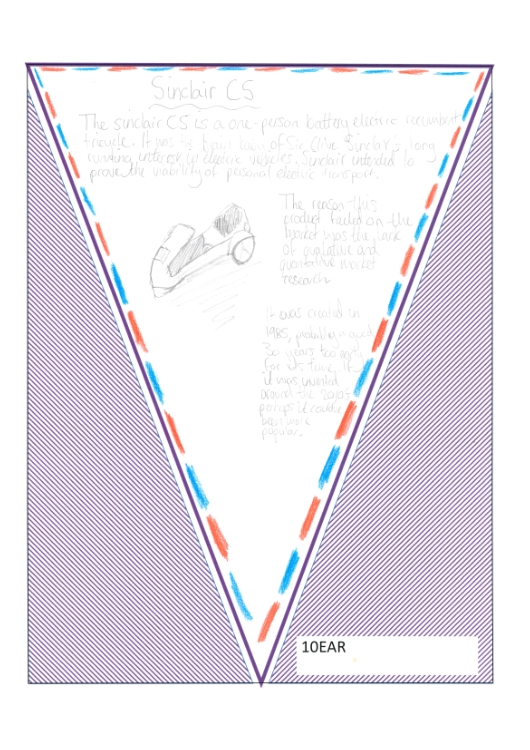 Sinclair C5
The sinclair C5 is a one-person battery electric recumbent
tricycle. It was born of Sir Clive Sinclair's long
running interest in electric vehicles. Sinclair intended to
prove the viability of personal electric transport.
The reason this
product failed on the
market was the lack
of qualitative and
quantitative market
research
It was created in
1985, probably
30 years too early
for its time. If
it was invented
around the 2010's
perhaps it could
been more
popular.
10EAR